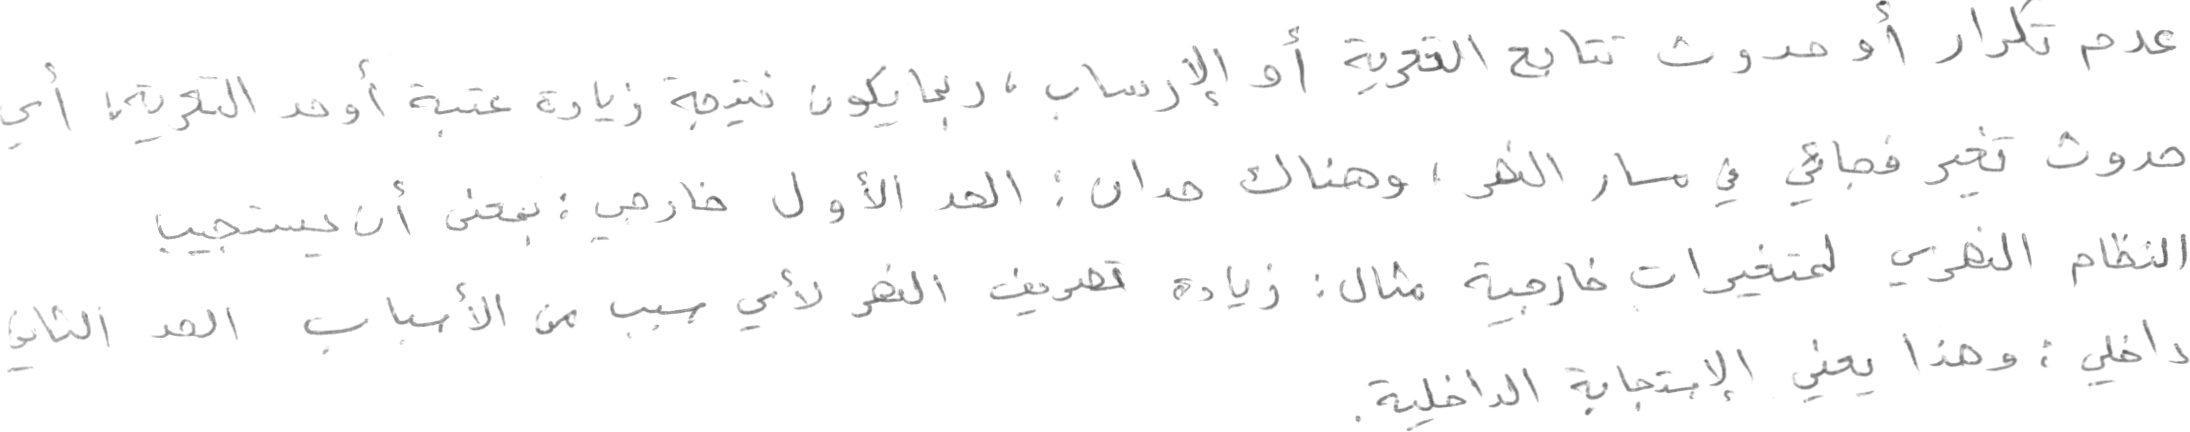 عدم تكرار أو حدوث تتابع التعرية أو الإرساب، ربما يكون نتيجة زيادة عتبة أو حد التعرية؛ أي
حدوث تغير فجائي في مسار النهر، وهناك حدان: الحد الأول خارجي: بمعنى أن يستجيب
النظام النهري لمتغيرات خارجية مثال: زيادة تصريف النهر لأي سبب من الأسباب الحد الثاني
داخلي: وهذا يعني الإستجابة الداخلية.